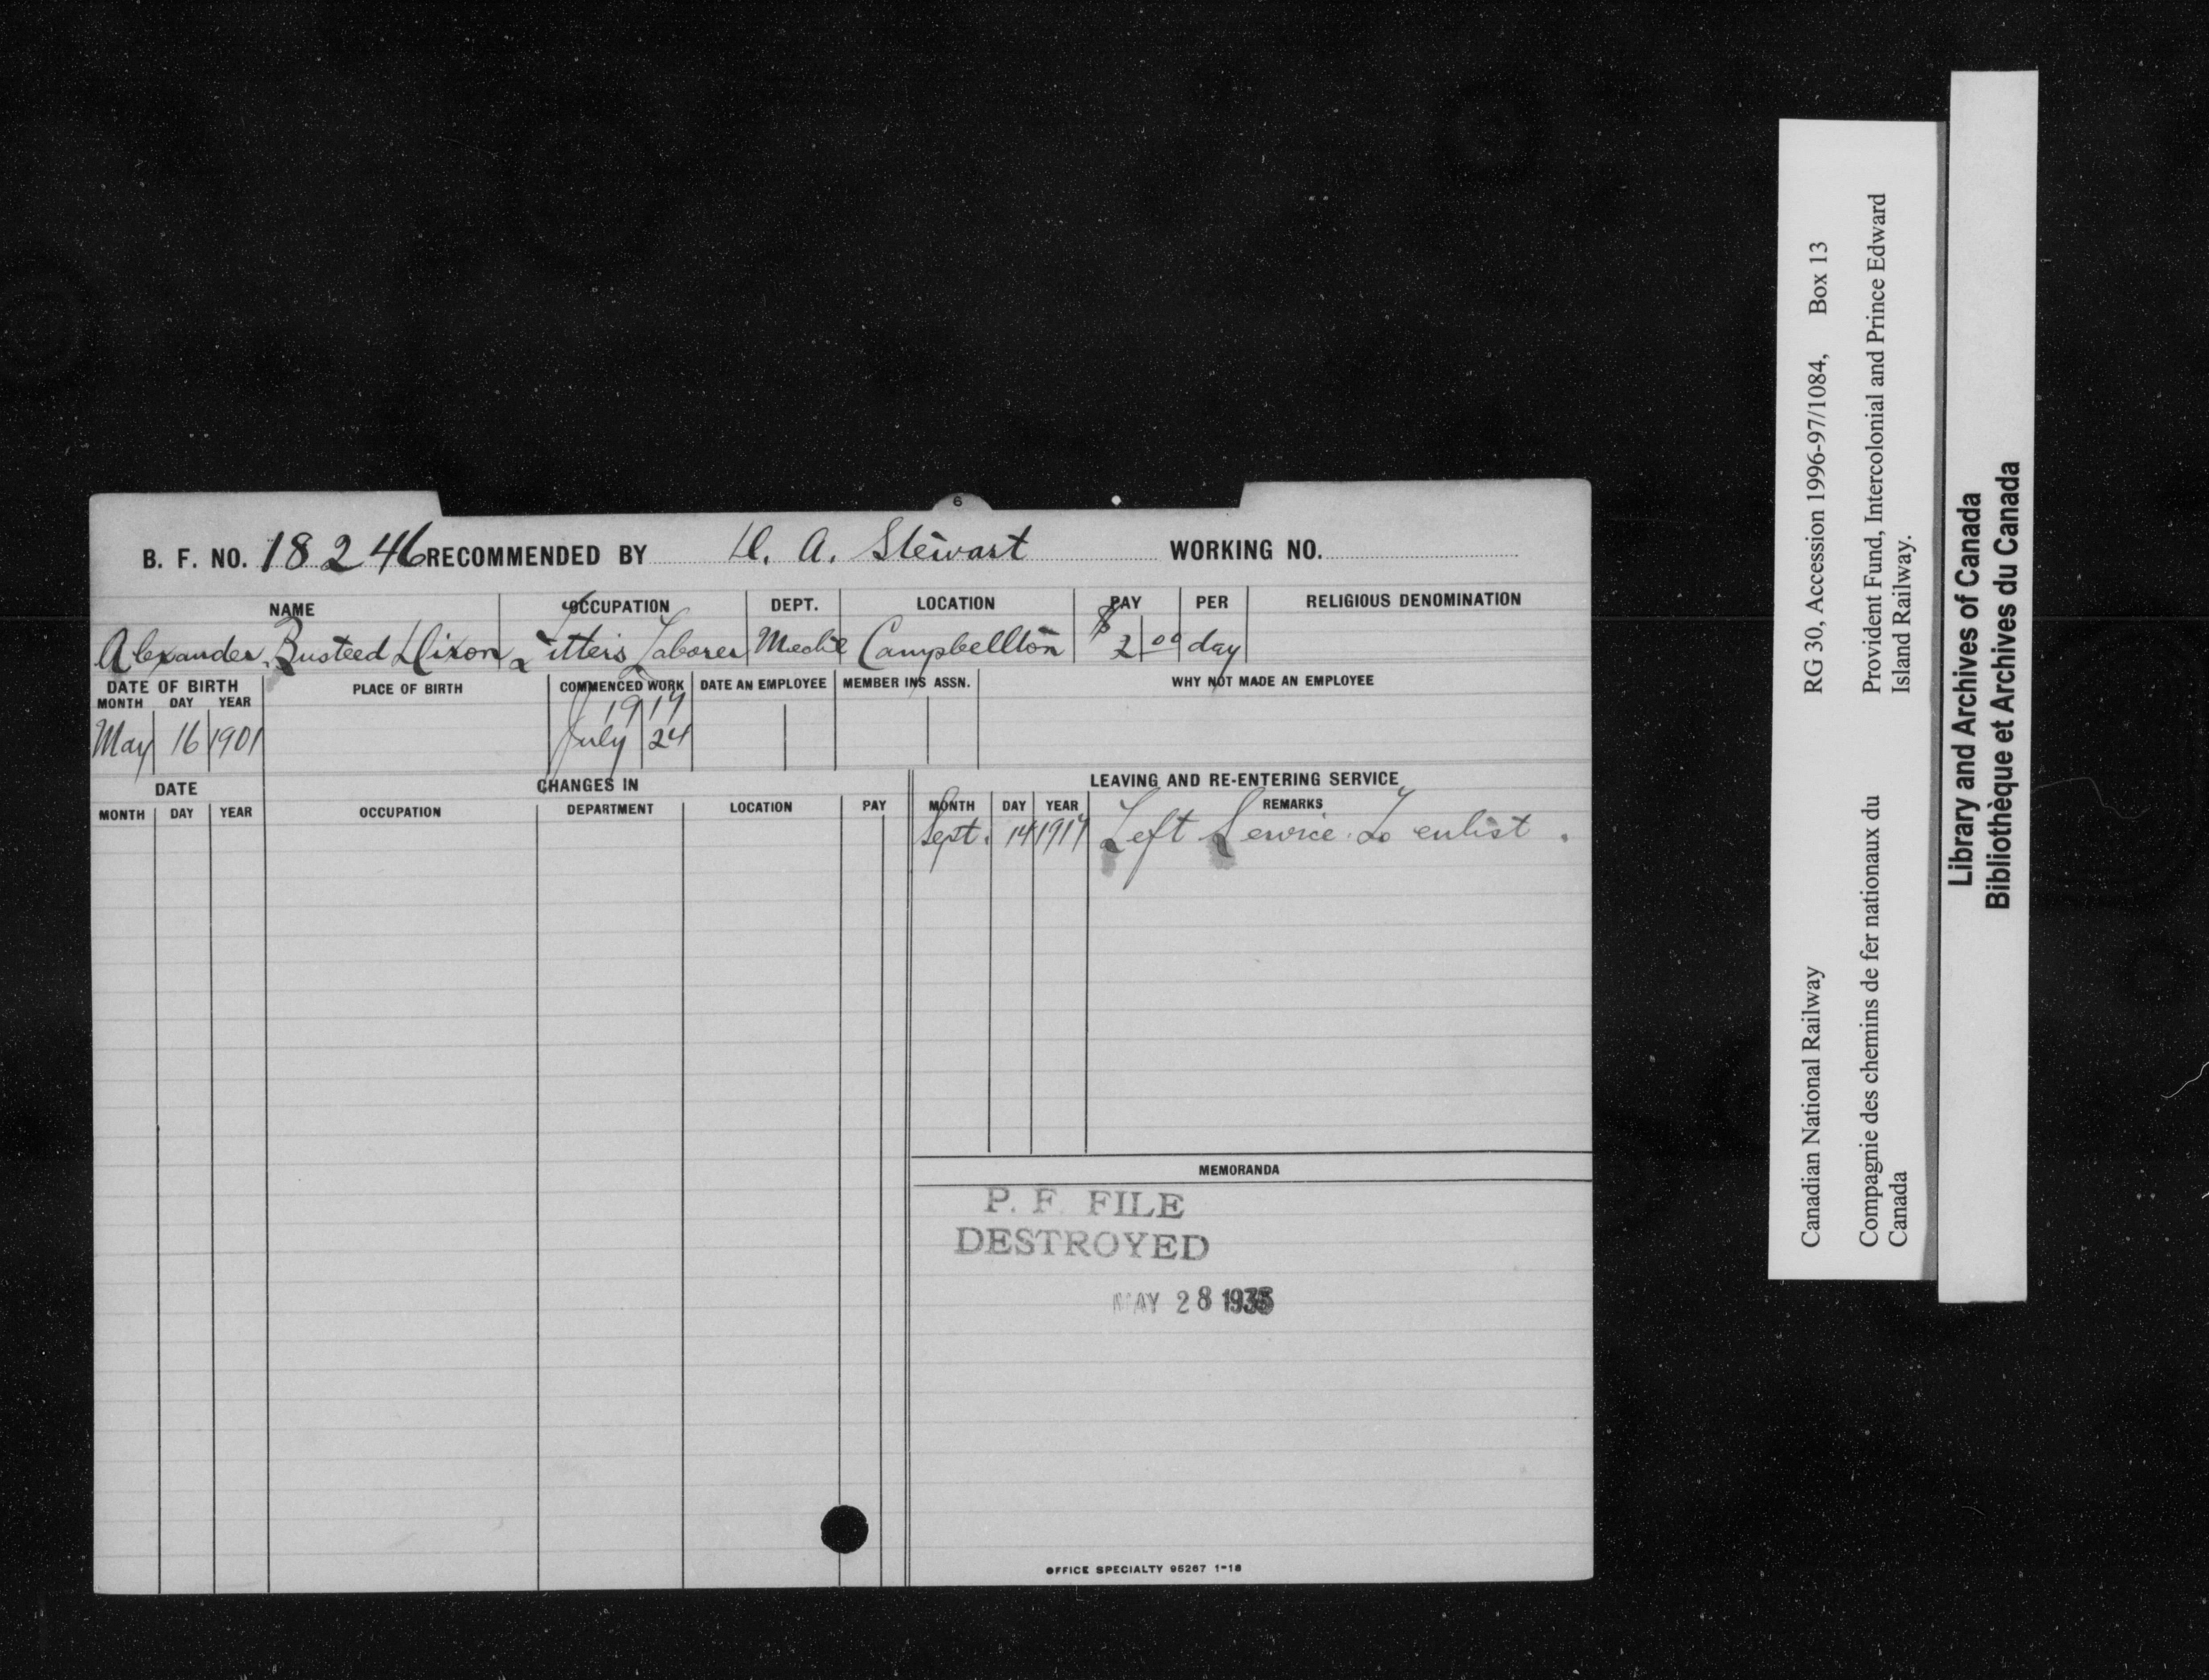 6
B. F. NO. 18246 RECOMMENDED BY D. A. Stewart WORKING NO.
NAME OCCUPATION DEPT. LOCATION PAY PER RELIGIOUS DENOMINATION
Alexander Busteed Dixon Fitters Laborer Mechl Campbellton $2 00 day
DATE OF BIRTH PLACE OF BIRTH COMMENCED WORK DATE AN EMPLOYEE MEMBER INS ASSN. WHY NOT MADE AN EMPLOYEE
MONTH DAY YEAR
1917
May 16 1901 July 24
DATE CHANGES IN LEAVING AND RE-ENTERING SERVICE
MONTH DAY YEAR OCCUPATION DEPARTMENT LOCATION PAY MONTH DAY YEAR REMARKS
Sept. 14 1917 Left Service To enlist.
MEMORANDA
P. F. FILE
DESTROYED
MAY 28
OFFICE SPECIALTY 95267 1-18
Canadian National Railway RG 30, Accession 1996-97/1084, Box 13
Compagnie des chemins de fer nationaux du Provident Fund, Intercolonial and Prince Edward
Canada Island Railway.
Library and Archives of Canada
Bibliothèque et Archives du Canada